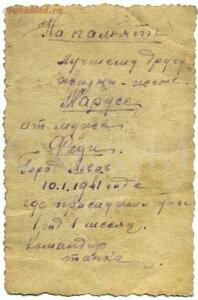 На память
лучшему другу
жизни - жене
Марусе
от мужа
Феди.
Город Львов
10.1.1941 года
где прослужил уже
1 год 1 месяц.
Командир
танка